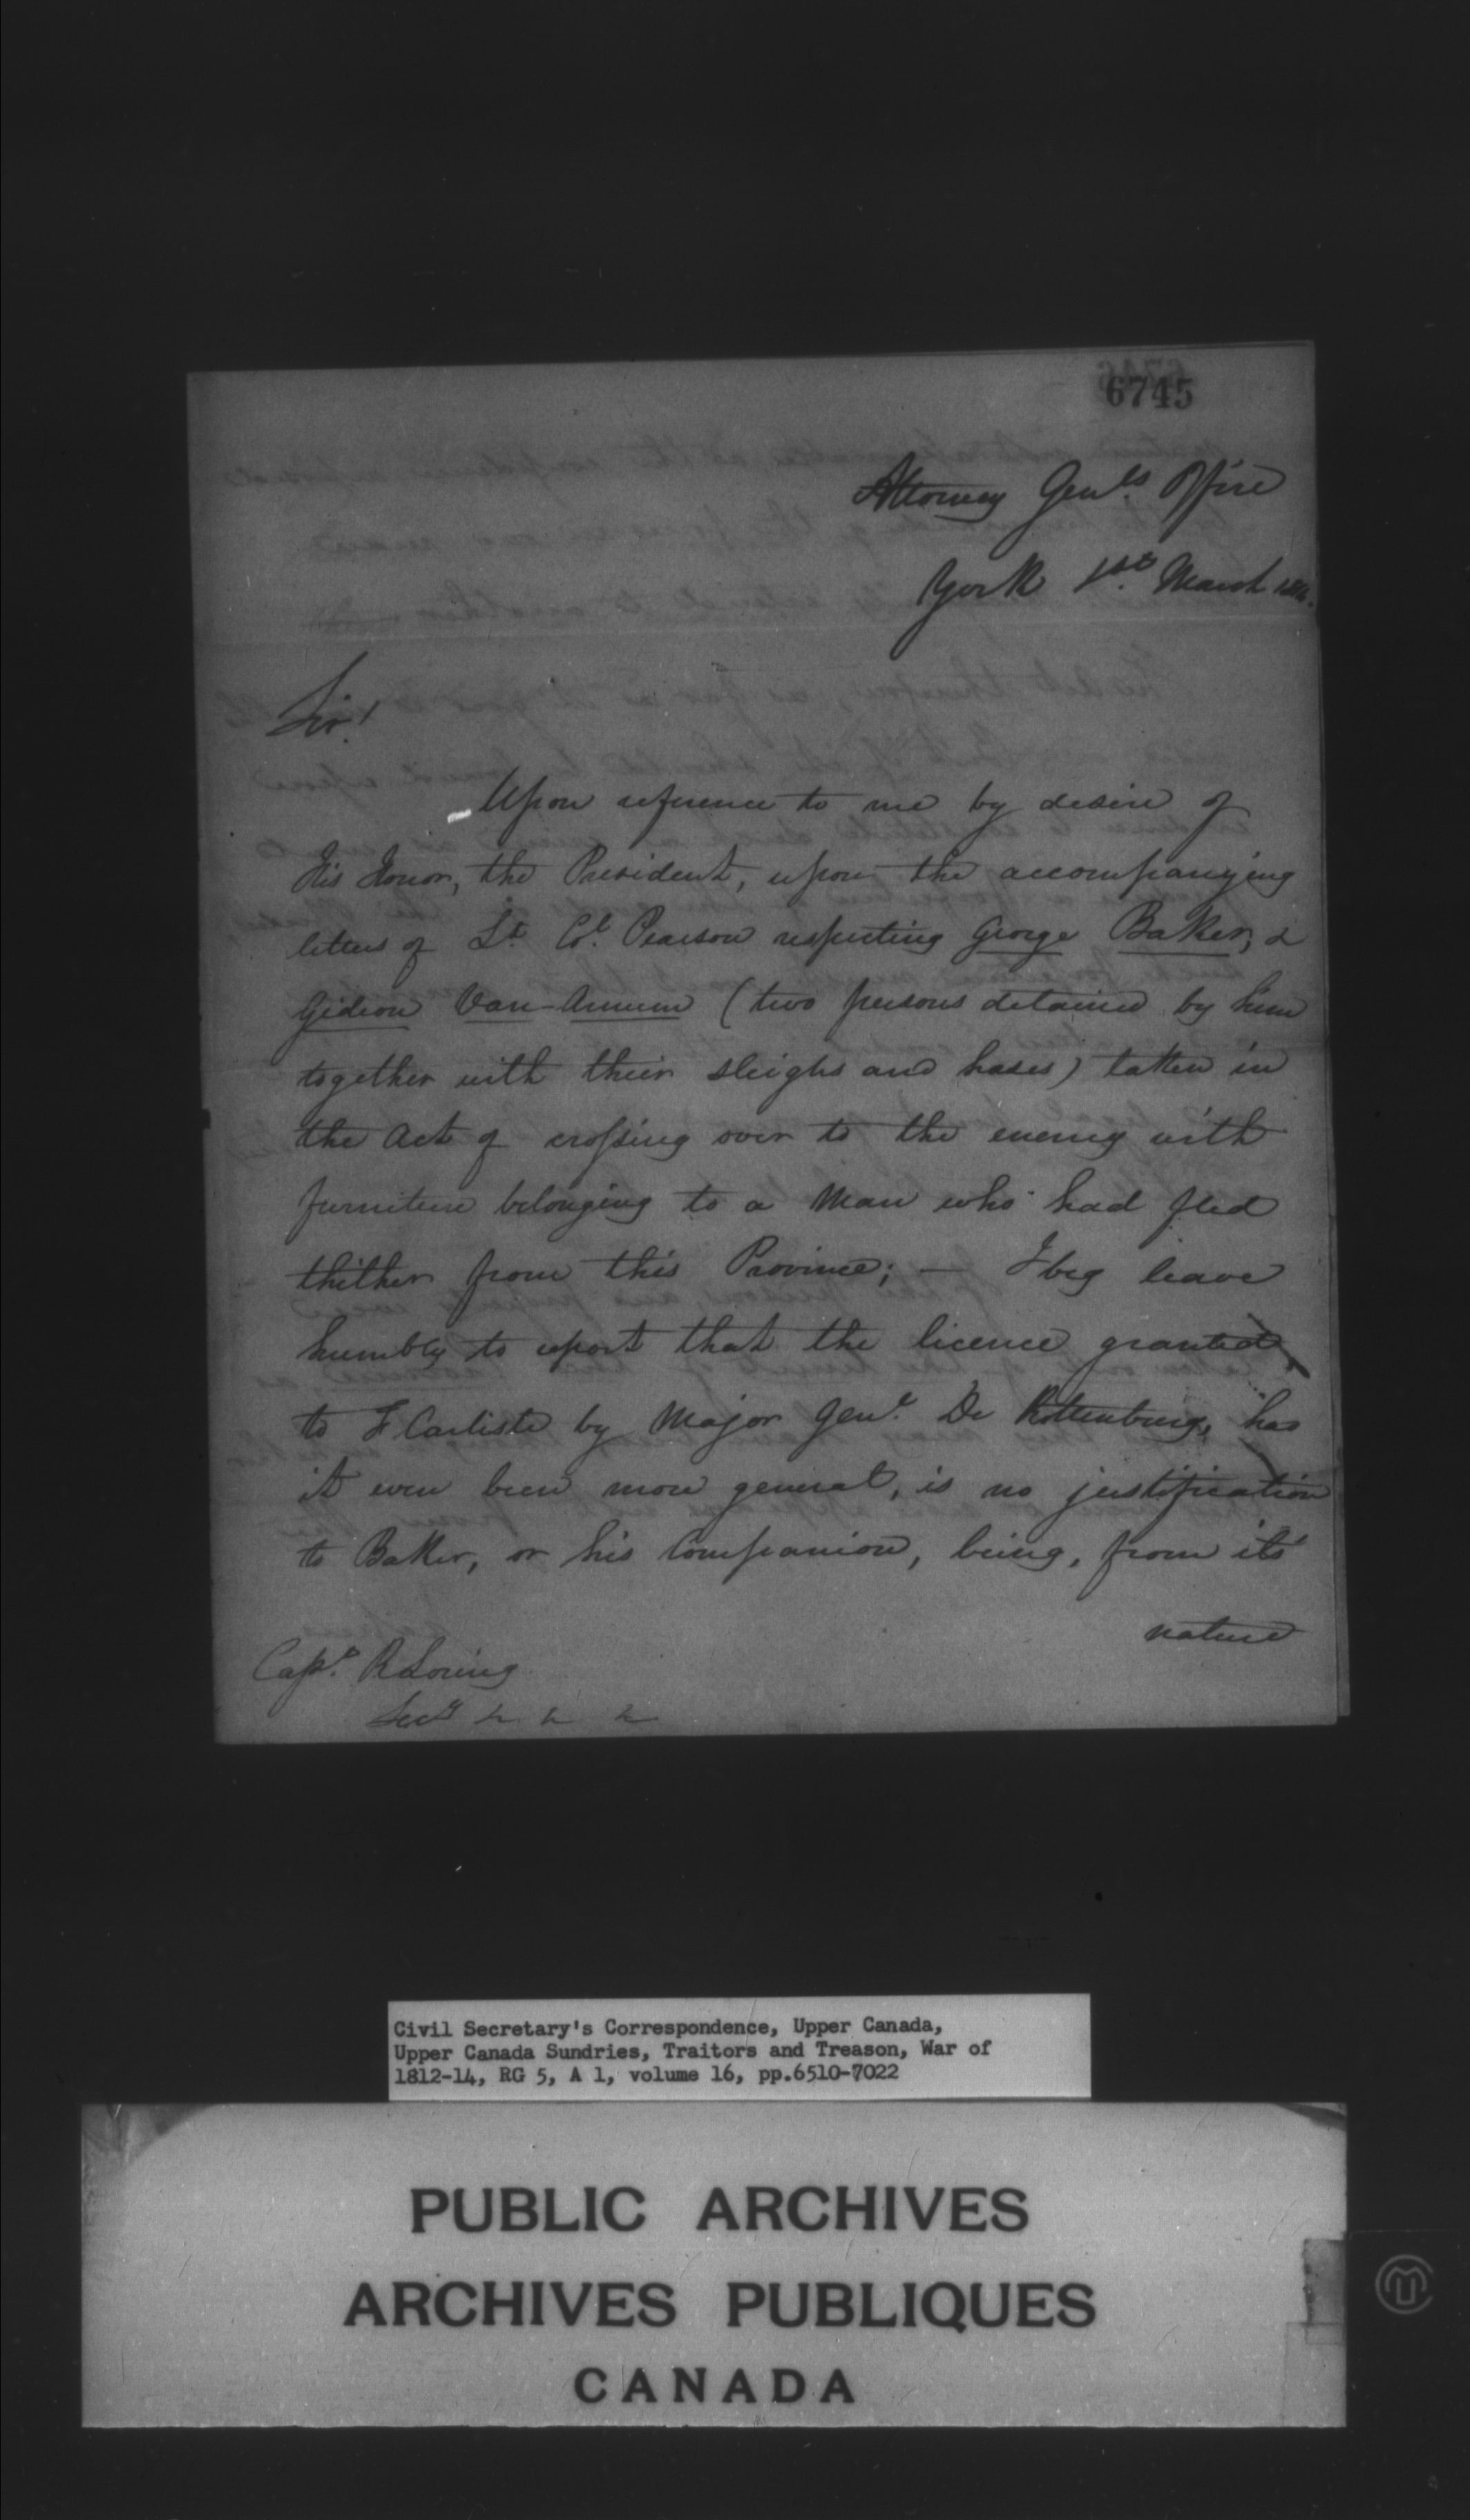 6745
Attorney Genls. Office
York 1st. March 1814.
Sir!
Upon reference to me by desire of
His Honor, the President, upon the accompanying
letters of Lt. Col. Pearson respecting George Baker, &
Gideon Van-Annum (two persons detained by him
together with their sleighs and hases) taken in
the Act of crossing over to the enemy with
furniture belonging to a Man who had fled
thither from this Province; — I beg leave
humbly to report that the licence granted,
to F Carlisle by Major Genl. De Rottenburg, has
it even been more general, is no justification
to Baker, or his Companion, being, from its
nature
Capt. R Loring
Secy & & &
Civil Secretary's Correspondence, Upper Canada,
Upper Canada Sundries, Traitors and Treason, War of
1812-14, RG 5, A 1, volume 16, pp.6510-7022
PUBLIC ARCHIVES
ARCHIVES PUBLIQUES
CANADA